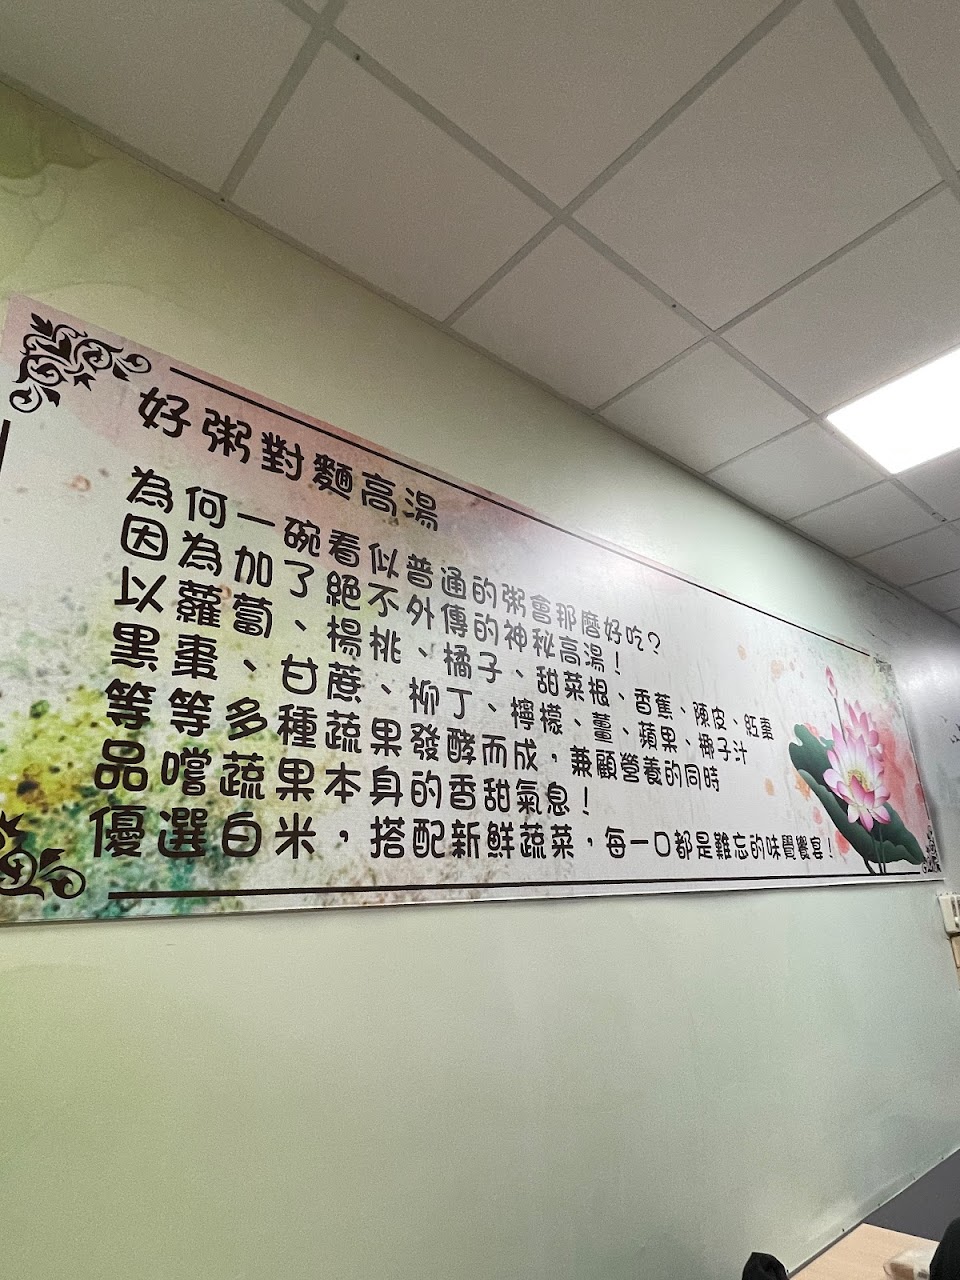 好粥對麵高湯
為何一碗看似普通的粥會那麼好吃？
因為加了絕不外傳的神秘高湯！
以蘿蔔、楊桃、橘子、甜菜根、香蕉、陳皮、紅棗
黑棗、甘蔗、柳丁、檸檬、薑、蘋果、椰子汁
等等多種蔬果發酵而成，兼顧營養的同時
品嚐蔬果本身的香甜氣息！
優選白米，搭配新鮮蔬菜，每一口都是難忘的味覺饗宴！